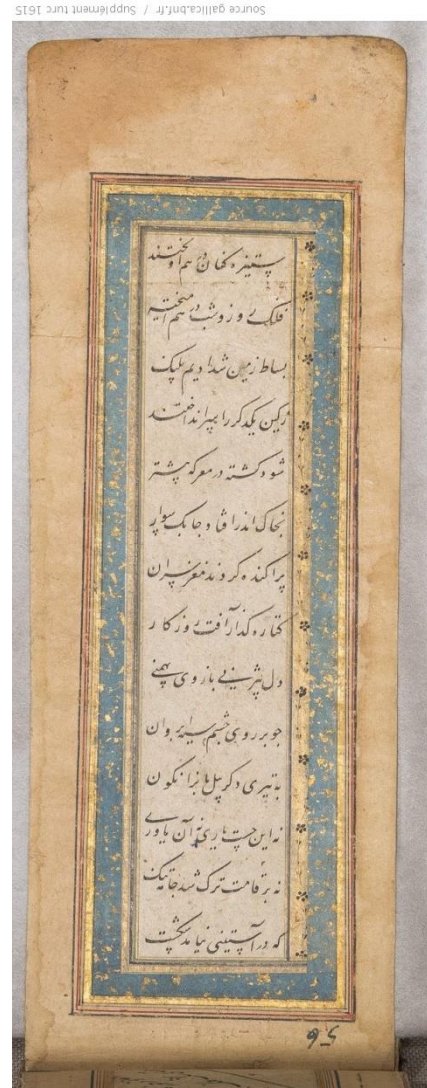 Source gallica.bnf.fr / Supplément turc 1615
ستیزه کنان در هم آویختند
فلک روز و شب در هم آمیخته
بساط زمین شد ادیم پلنگ
زکین یکدکر را بپر انداختند
شود کشته در معرکه پشتر
بخاک اندر افتاد جابک سوار
پراکنده کردند مغز سران
کناره کذار آفت روزکار
دل شیر نی بازوی بهمنی
جو بر روی خشم سیه ابروان
به تیری دکر پل بانرا نکون
نه این جست یاری نه آن یاوری
نه بر قامت ترک شد جا تنک
که در آستینی نیامد
5-6